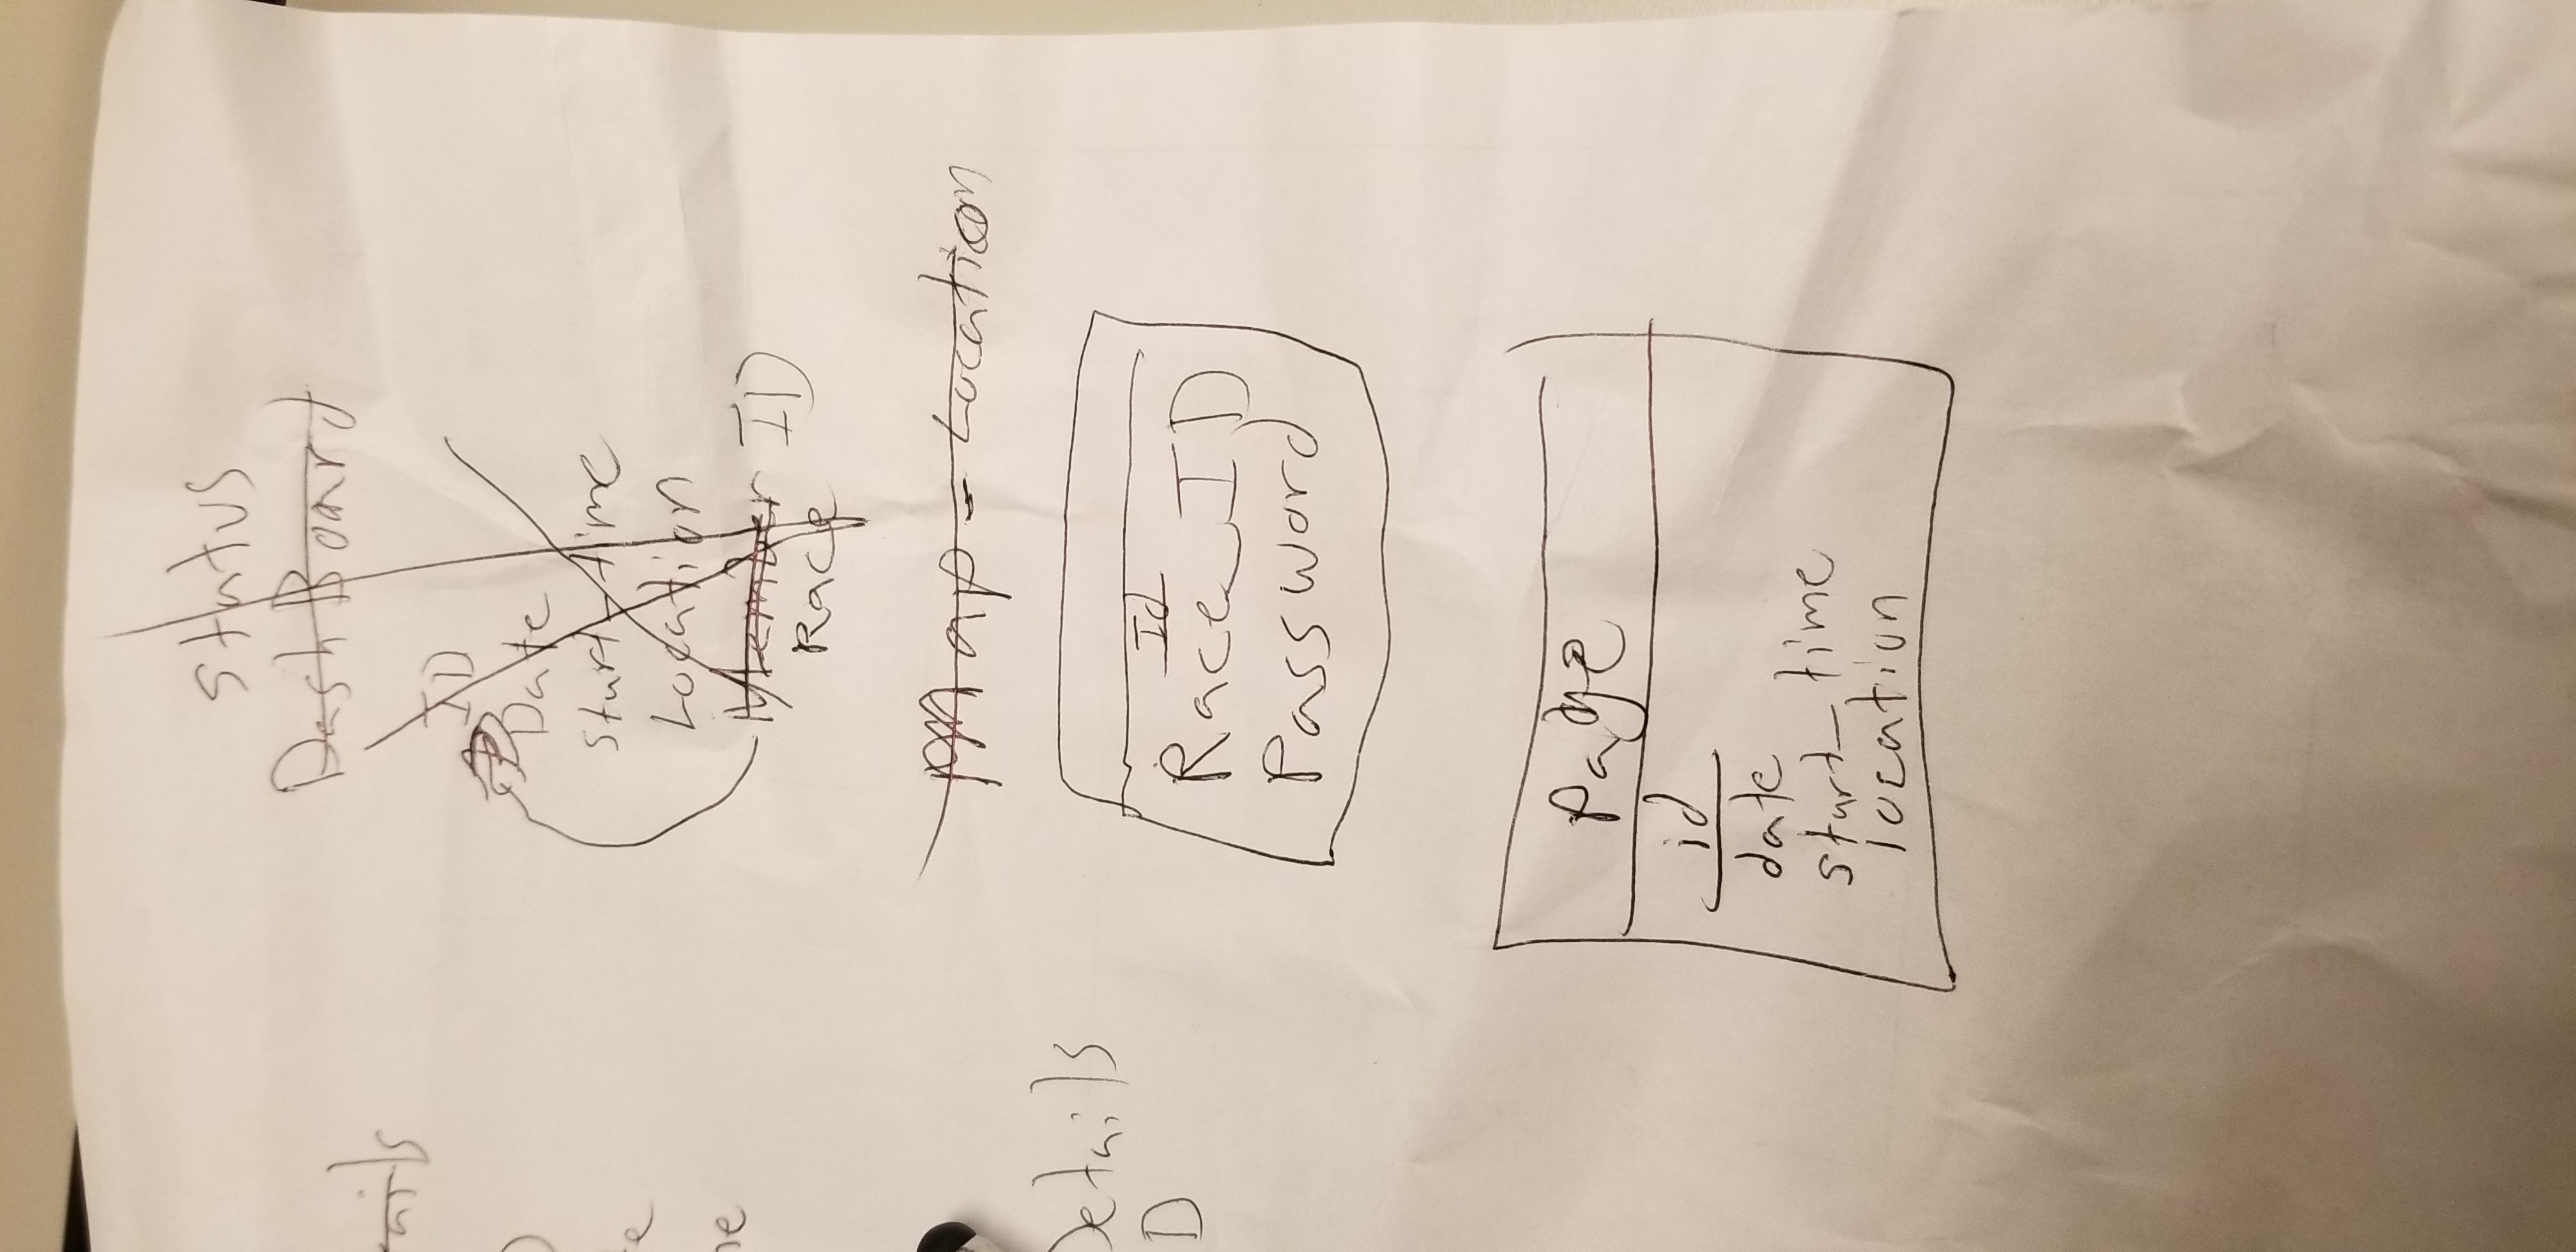 status
DashBoard
ails
ID
Date
start_time
Location
Member ID
Race
Map - Location
Details
D
Id
Race_ID
Password
Page
id
date
start_time
location